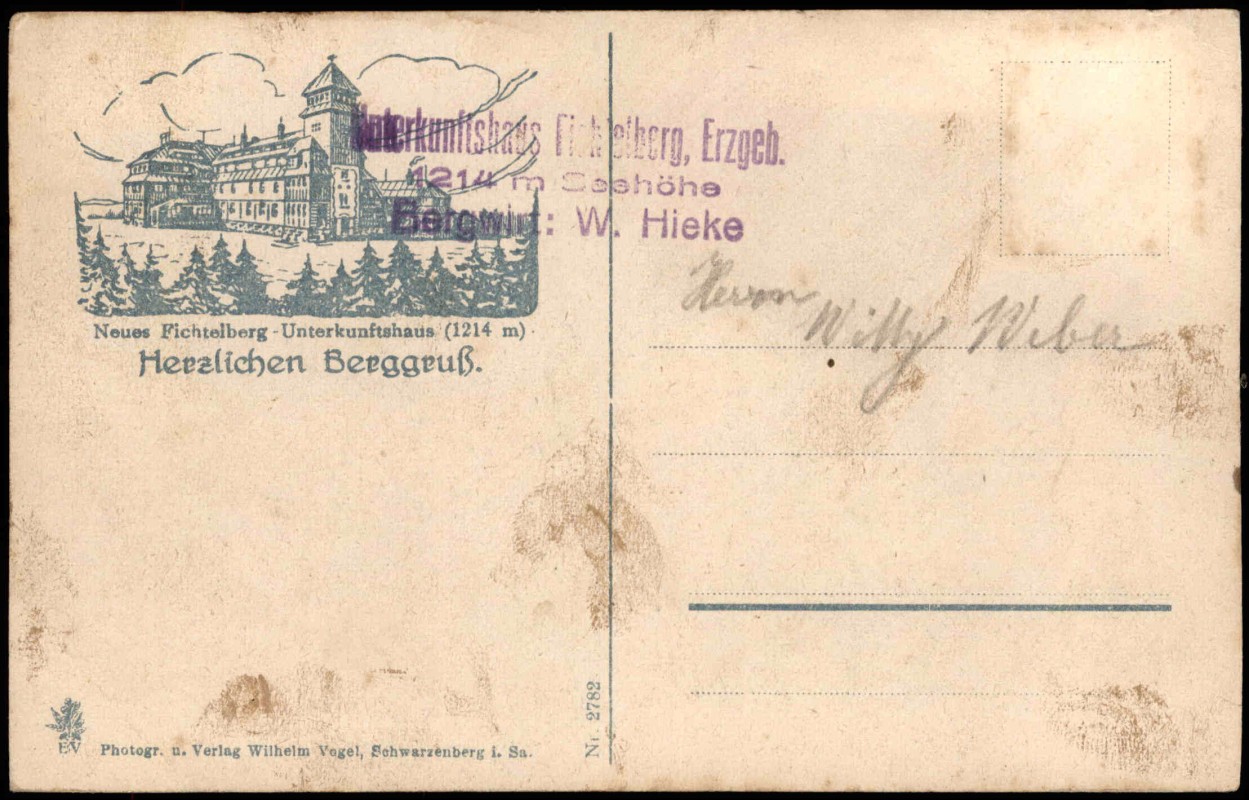 Unterkunftshaus Fichtelberg, Erzgeb.
1214 m Seehöhe
Bergwirt: W. Hieke
Neues Fichtelberg-Unterkunftshaus (1214 m)
Herzlichen Berggruß.
Herrn
Willy Weber
Nr. 2782
EV
Photogr. u. Verlag Wilhelm Vogel, Schwarzenberg i. Sa.